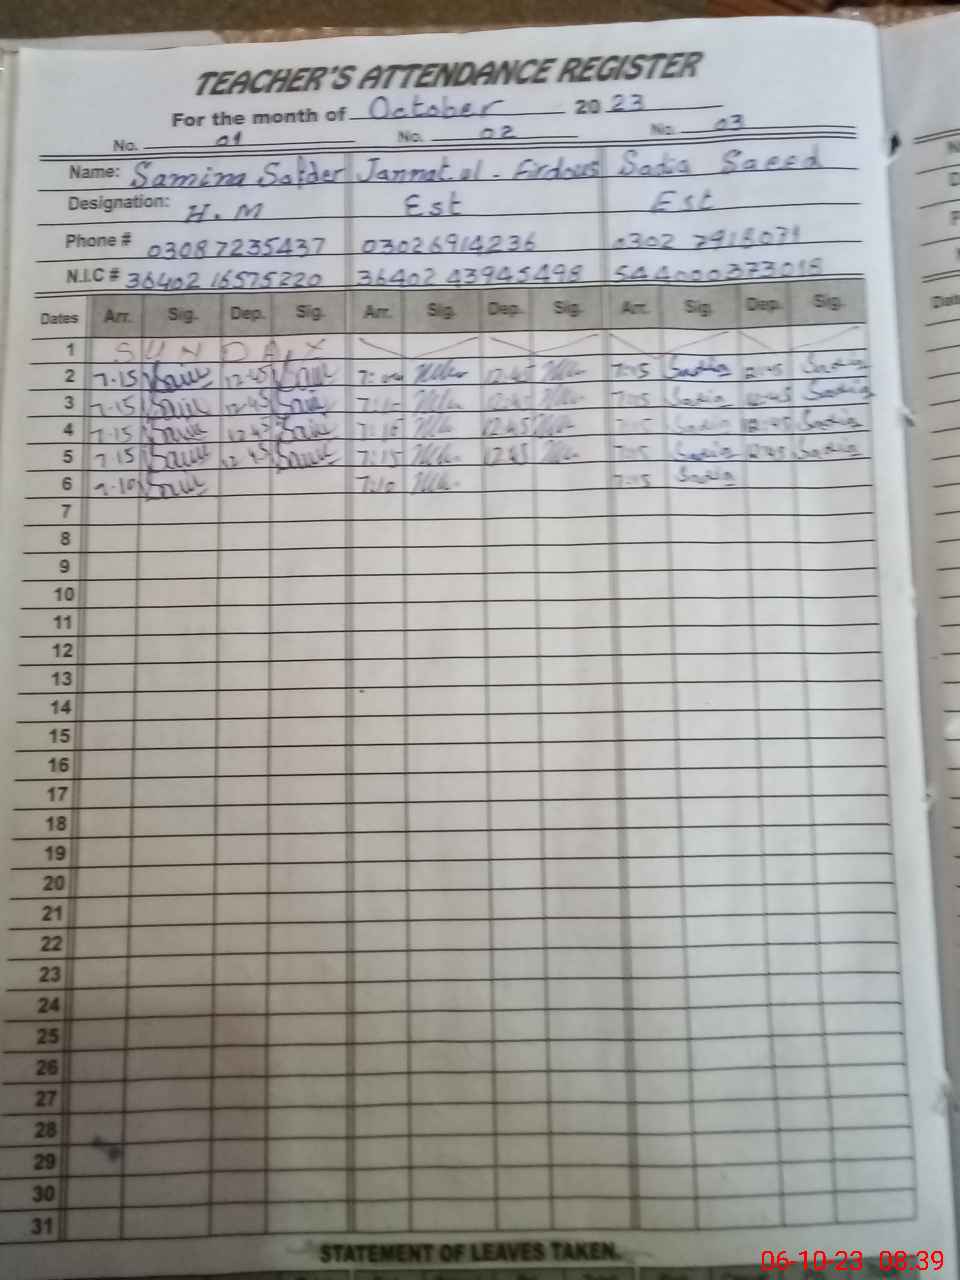 TEACHER'S ATTENDANCE REGISTER
For the month of October 2023
No. 01 No. 02 No. 03
Name: Samina Safder Jannat ul - Firdous Sadia Saeed
Designation: H.M Est Est
Phone # 03087235437 03026914236 0302
N.I.C # 36402 16575220 36402 43945498 544000373018
Dates Arr. Sig. Dep. Sig. Arr. Sig. Dep. Sig. Arr. Sig. Dep. Sig.
1 SUNDAY
2 7-15 12-45 12:45 7:15 Sadia 12:45 Sadia
3 7-15 12-45 7:15 Sadia 12:45 Sadia
4 7-15 12-45 12:45 7:15 Sadia 12:45 Sadia
5 7-15 12-45 7:15 12:45 7:15 Sadia 12:45 Sadia
6 7-10 7:10 7:15 Sadia
7
8
9
10
11
12
13
14
15
16
17
18
19
20
21
22
23
24
25
26
27
28
29
30
31
STATEMENT OF LEAVES TAKEN.
06-10-23 08:39